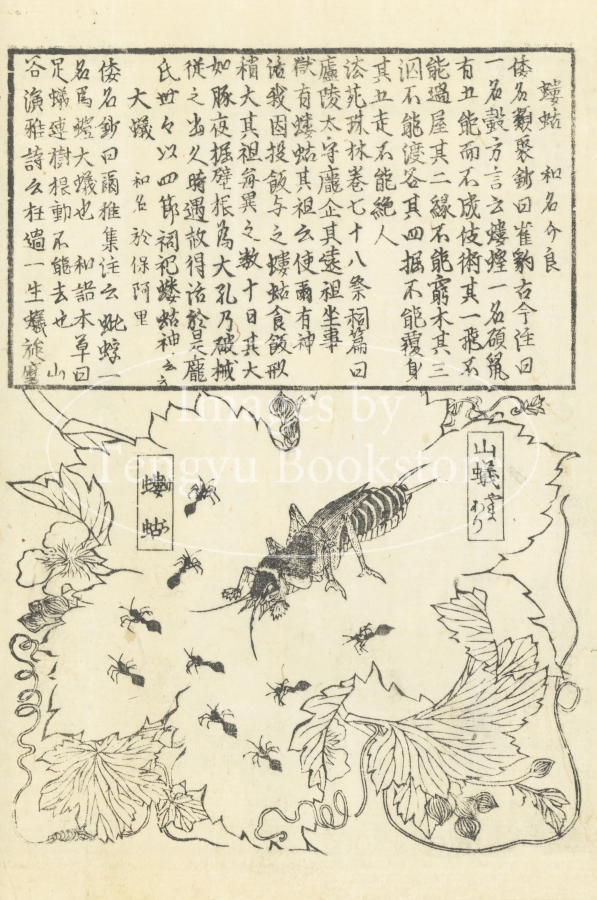 螻蛄 和名介良
倭名類聚鈔曰崔豹古今注曰
一名螜方言云螻蛭一名碩鼠
有五能而不成伎術其一飛不
能過屋其二緣不能窮木其三
泅不能渡谷其四掘不能覆身
其五走不能絶人
法苑珠林卷七十八祭祠篇曰
廬陵太守龐企其遠祖坐事
獄有螻蛄其祖云使爾有神
活我因投飯与之螻蛄食飯形
稍大其祖每異之数十日其大
如豚夜掘壁根為大孔乃破械
従之出久時遇赦得活於是龐
氏世々以四節祠祀螻蛄神云々
大蟻 和名於保阿里
倭名鈔曰爾雅集注云蚍蜉一
名馬螘大蟻也 和語本草曰
足蟻連樹根動不能去也 山
谷演雅詩云枉過一生蟻旋磨
山蟻
螻蛄
Images by
Tengyu Bookstore